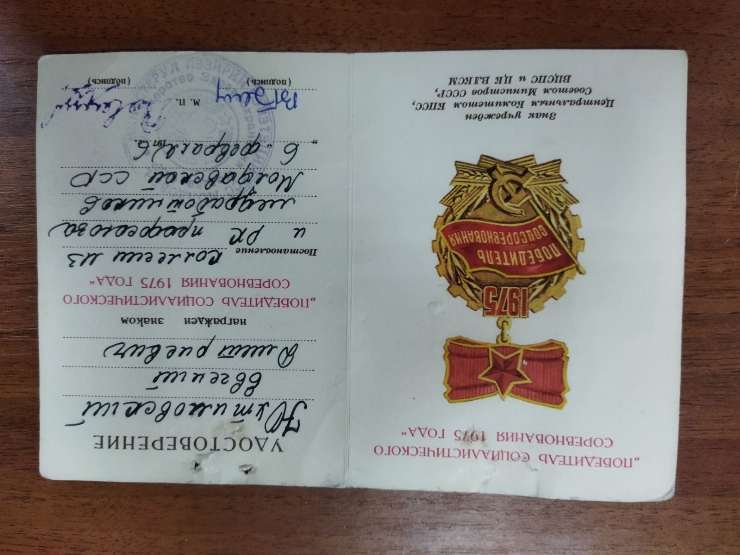 „ПОБЕДИТЕЛЬ СОЦИАЛИСТИЧЕСКОГО
СОРЕВНОВАНИЯ 1975 ГОДА"
1975
ПОБЕДИТЕЛЬ
СОЦСОРЕВНОВАНИЯ
Знак учрежден
Центральным Комитетом КПСС,
Советом Министров СССР,
ВЦСПС и ЦК ВЛКСМ
УДОСТОВЕРЕНИЕ
Евгений
Дмитриевич
награжден знаком
„ПОБЕДИТЕЛЬ СОЦИАЛИСТИЧЕСКОГО
СОРЕВНОВАНИЯ 1975 ГОДА"
Постановление коллегии МЗ
и РК профсоюза
медработников
Молдавской ССР
„6 февраля 1976
М. П.
(подпись) (подпись)